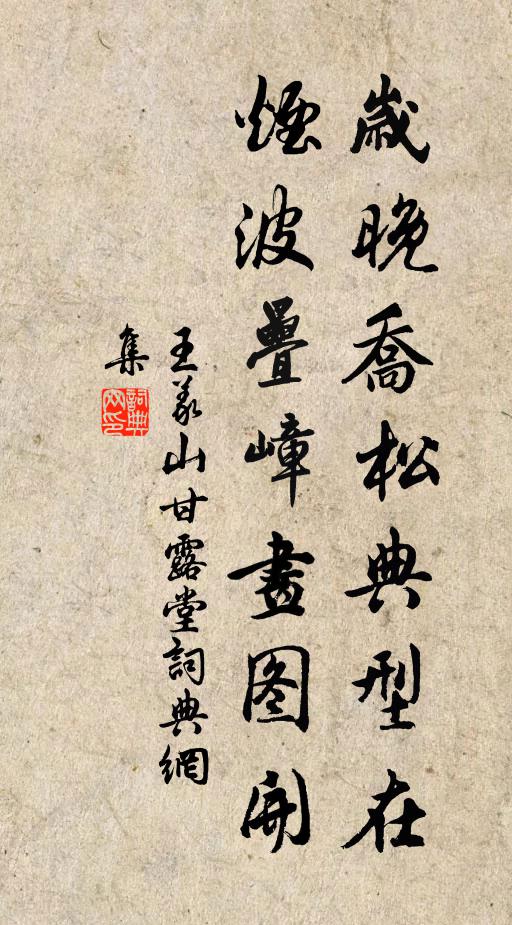 歲晚喬松典型在
煙波疊嶂畫图開
王義山甘露堂詞典網
集
詞典
网印